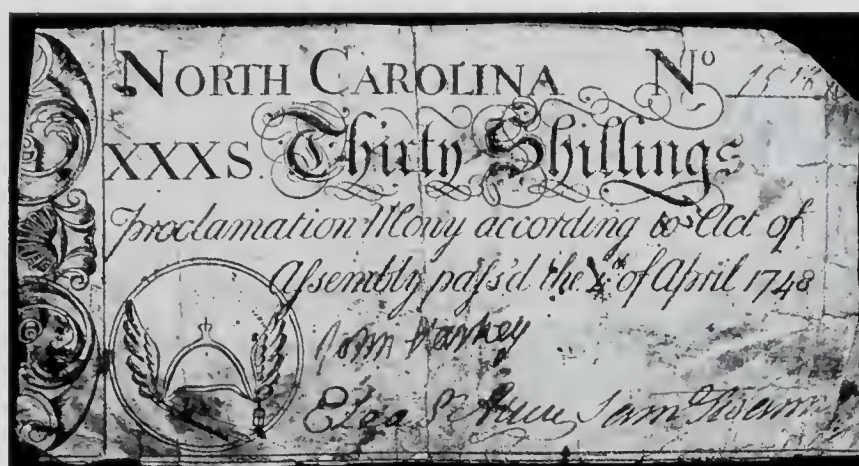 NORTH CAROLINA No
XXXS. Thirty Shillings
Proclamation Mony according to Act of
Assembly pass'd the 4th of April 1748
John
Elea Sam Swann